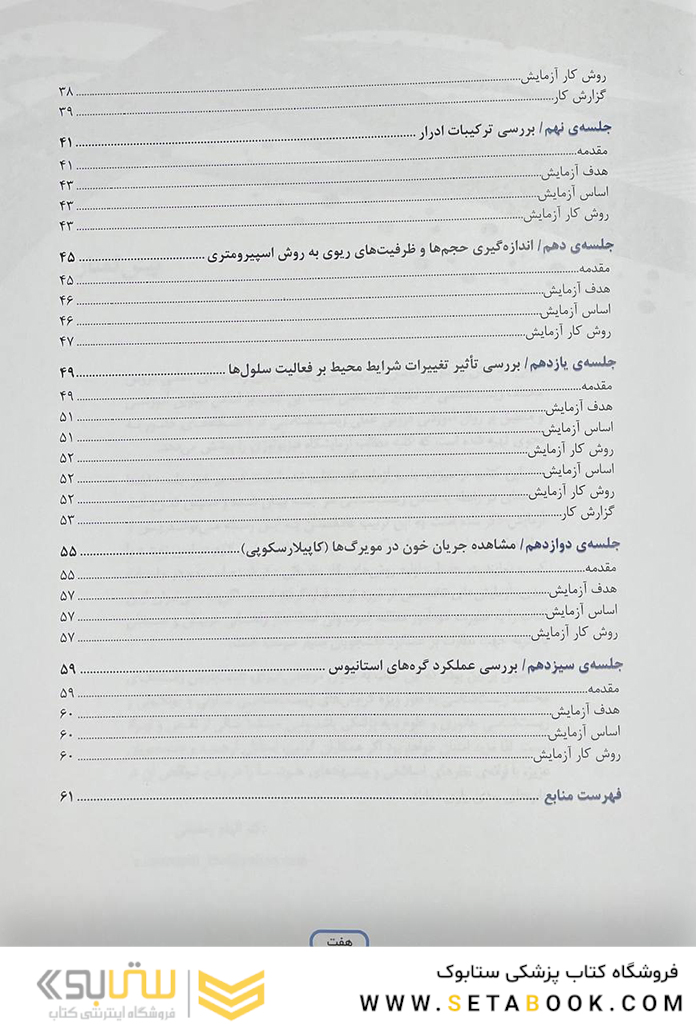 روش کار آزمایش ۳۸
گزارش کار ۳۹
جلسه‌ی نهم/ بررسی ترکیبات ادرار ۴۱
مقدمه ۴۱
هدف آزمایش ۴۳
اساس آزمایش ۴۳
روش کار آزمایش ۴۳
جلسه‌ی دهم/ اندازه‌گیری حجم‌ها و ظرفیت‌های ریوی به روش اسپیرومتری ۴۵
مقدمه ۴۵
هدف آزمایش ۴۶
اساس آزمایش ۴۶
روش کار آزمایش ۴۷
جلسه‌ی یازدهم/ بررسی تأثیر تغییرات شرایط محیط بر فعالیت سلول‌ها ۴۹
مقدمه ۴۹
هدف آزمایش ۵۱
اساس آزمایش ۵۱
روش کار آزمایش ۵۲
اساس آزمایش ۵۲
روش کار آزمایش ۵۲
گزارش کار ۵۳
جلسه‌ی دوازدهم/ مشاهده جریان خون در مویرگ‌ها (کاپیلارسکوپی) ۵۵
مقدمه ۵۵
هدف آزمایش ۵۷
اساس آزمایش ۵۷
روش کار آزمایش ۵۷
جلسه‌ی سیزدهم/ بررسی عملکرد گره‌های استانیوس ۵۹
مقدمه ۵۹
هدف آزمایش ۶۰
اساس آزمایش ۶۰
روش کار آزمایش ۶۰
فهرست منابع ۶۱
هفت
فروشگاه کتاب پزشکی ستابوک
WWW.SETABOOK.COM
ستابوک
فروشگاه اینترنتی کتاب